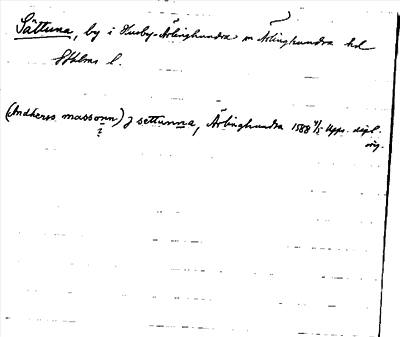 Sättuna, by i Husby-Ärlinghundra sn Ärlinghundra hd
Sthlms l.
(Andherss massonn) j settunna, Ärlinghundra 1588 4/5 Upps. dipl.
orig.